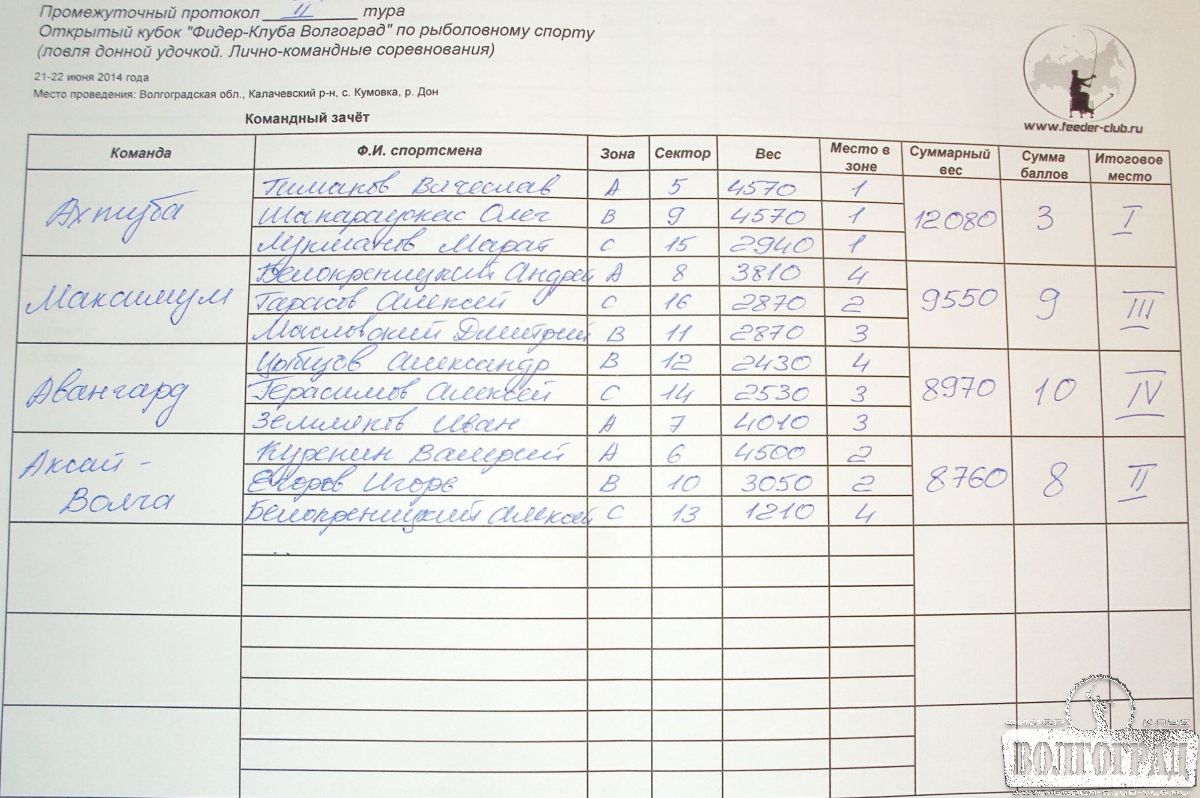 Промежуточный протокол II тура
Открытый кубок "Фидер-Клуба Волгоград" по рыболовному спорту
(ловля донной удочкой. Лично-командные соревнования)
21-22 июня 2014 года
Место проведения: Волгоградская обл., Калачевский р-н, с. Кумовка, р. Дон
www.feeder-club.ru
Командный зачёт
Команда Ф.И. спортсмена Зона Сектор Вес Место в зоне Суммарный вес Сумма баллов Итоговое место
Ахтуба Тиманов Вячеслав A 5 4570 1 12080 3 I
Шапараускас Олег B 9 4570 1
Лукманов Марат C 15 2940 1
Максимум Белокреницкий Андрей A 8 3810 4 9550 9 III
Тарасов Алексей C 16 2870 2
Масловский Дмитрий B 11 2870 3
Авангард Александр B 12 2430 4 8970 10 IV
Герасимов Алексей C 14 2530 3
Земляков Иван A 7 4010 3
Аксай - Волга Куренин Валерий A 6 4500 2 8760 8 II
Егоров Игорь B 10 3050 2
Белокреницкий Алексей C 13 1210 4
ФИДЕР КЛУБ
ВОЛГОГРАД